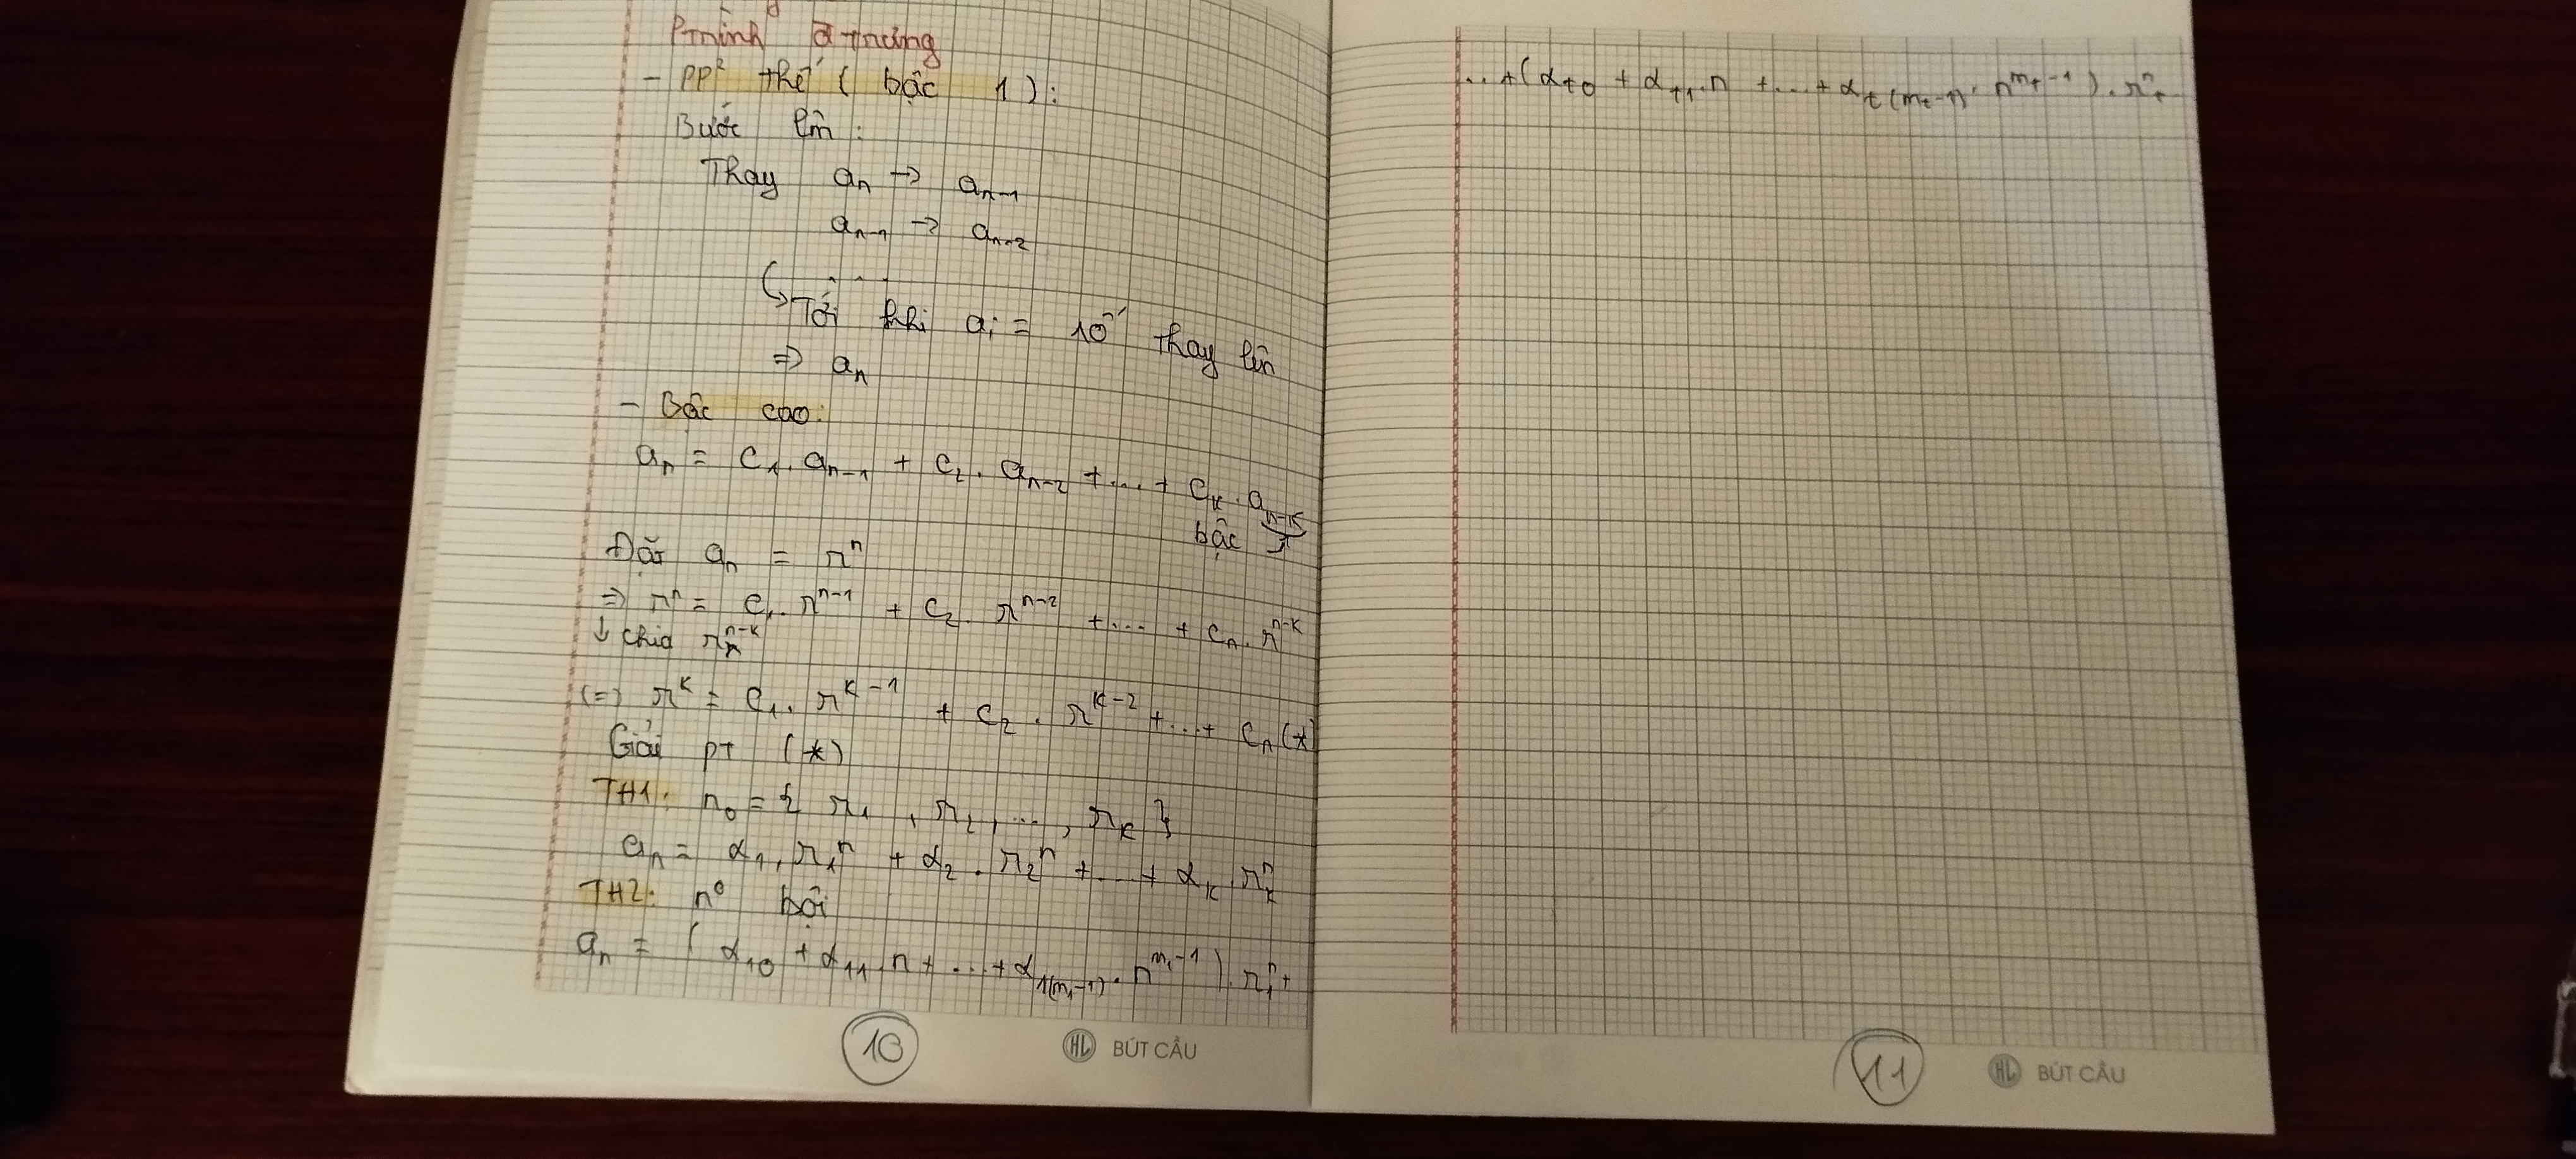 Ptrình đ trưng
- PP² thế ( bậc 1 ) :
Bước lên :
Thay aₙ → aₙ₋₁
aₙ₋₁ → aₙ₋₂
↳ . . . .
Tới khi aᵢ = thay lên
⇒ aₙ
- Bậc cao :
aₙ = c₁ . aₙ₋₁ + c₂ . aₙ₋₂ + ... + cₖ . aₙ₋ₖ
bậc
Đặt aₙ = rⁿ
⇒ rⁿ = c₁ . rⁿ⁻¹ + c₂ . rⁿ⁻² + ... + cₙ . rⁿ⁻ᵏ
↓ chia rⁿ⁻ᵏ
(=) rᵏ = c₁ . rᵏ⁻¹ + c₂ . rᵏ⁻² + ... + cₙ (*)
Giải pt (*)
TH1: n₀ = { r₁ , r₂ , ... , rₖ }
aₙ = α₁ . r₁ⁿ + α₂ . r₂ⁿ + ... + αₖ . rₖⁿ
TH2: n⁰ bội
aₙ = ( α₁₀ + α₁₁ n + ... + α₁₍ₘ₁₋₁₎ . n^(m₁-1) ) . r₁ⁿ +
10
HL BÚT CẦU
... + ( αₜ₀ + αₜ₁ . n + ... + αₜ₍ₘₜ₋₁₎ . n^(mₜ-1) ) . rₜⁿ
11
HL BÚT CẦU